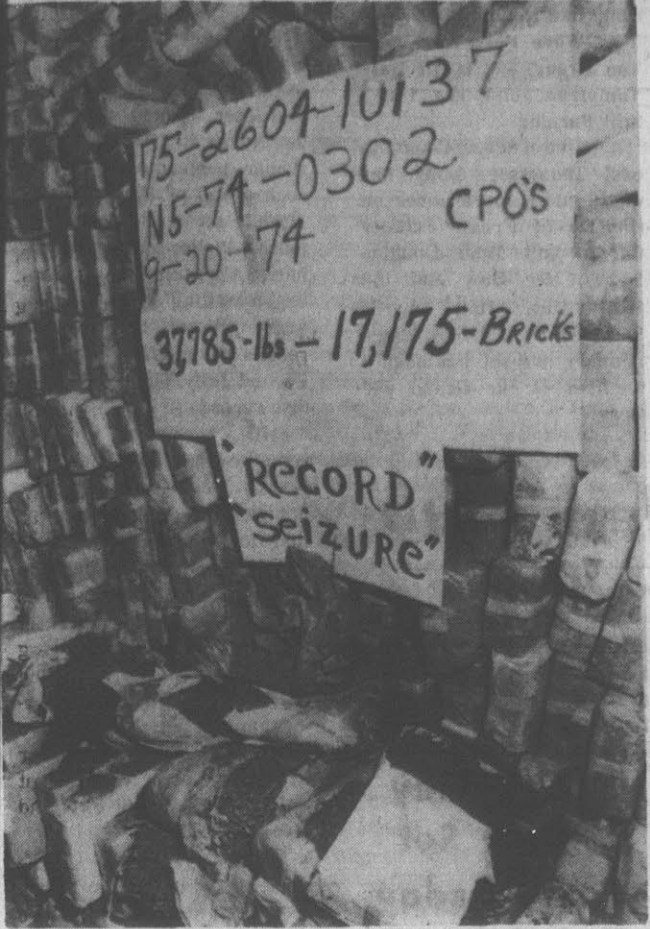 75-2604-101137
N5-74-0302
CPO'S
9-20-74
37,785-lbs - 17,175-BRICKS
"RECORD"
"SeiZURe"